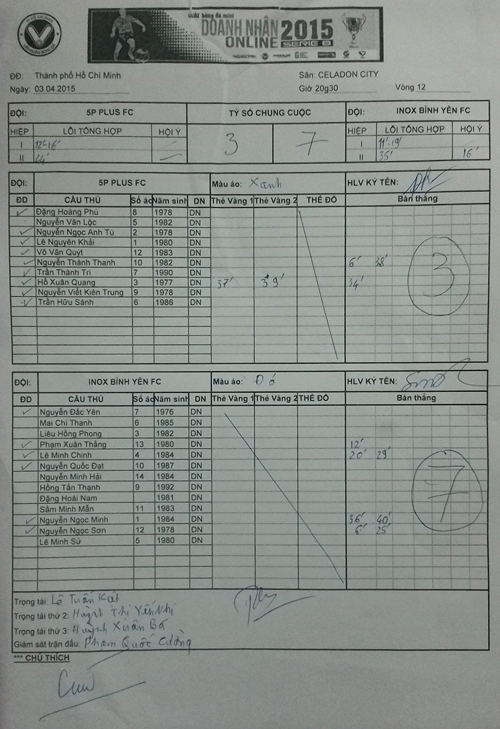 GIẢI bóng đá mini
DOANH NHÂN 2015
ONLINE SERIE B
ĐĐ: Thành phố Hồ Chí Minh Sân: CELADON CITY
Ngày: 03.04.2015 Giờ 20g30 Vòng 12
ĐỘI: 5P PLUS FC TỶ SỐ CHUNG CUỘC ĐỘI: INOX BÌNH YÊN FC
HIỆP LỖI TỔNG HỢP HỘI Ý 3 7 HIỆP LỖI TỔNG HỢP HỘI Ý
I 12'-16' I 11'-19'
II 24' II 35' 16'
ĐỘI: 5P PLUS FC Màu áo: Xanh HLV KÝ TÊN:
ĐD CẦU THỦ Số áo Năm sinh DN Thẻ Vàng 1 Thẻ Vàng 2 THẺ ĐỎ Bàn thắng
Đặng Hoàng Phú 8 1978 DN
Nguyễn Văn Lộc 5 1982 DN
Nguyễn Ngọc Anh Tú 2 1978 DN
Lê Nguyên Khải 1 1980 DN
Võ Văn Quýt 12 1983 DN
Nguyễn Thành Thanh 10 1982 DN 6' 38'
Trần Thành Trí 7 1990 DN
Hồ Xuân Quang 3 1977 DN 37' 39' 34'
Nguyễn Viết Kiên Trung 9 1978 DN
Trần Hữu Sánh 6 1986 DN
3
ĐỘI: INOX BÌNH YÊN FC Màu áo: Đỏ HLV KÝ TÊN:
ĐD CẦU THỦ Số áo Năm sinh DN Thẻ Vàng 1 Thẻ Vàng 2 THẺ ĐỎ Bàn thắng
Nguyễn Đắc Yên 7 1976 DN
Mai Chí Thanh 6 1985 DN
Liêu Hồng Phong 3 1982 DN
Phạm Xuân Thắng 13 1980 DN 12'
Lê Minh Chinh 4 1984 DN 20' 29'
Nguyễn Quốc Đạt 10 1987 DN
Nguyễn Minh Hải 14 1984 DN
Hồng Tấn Thạnh 9 1992 DN
Đặng Hoài Nam 1981 DN
Sầm Minh Mẫn 11 1983 DN
Nguyễn Ngọc Minh 1 1984 DN 36' 40'
Nguyễn Ngọc Sơn 12 1978 DN 6' 25'
Lê Minh Sử 5 1980 DN
7
Trọng tài: Lê Tuấn Kiệt
Trọng tài thứ 2: Huỳnh Thị Yến Nhi
Trọng tài thứ 3: Huỳnh Xuân Bá
Giám sát trận đấu: Phạm Quốc Cường
*** CHÚ THÍCH